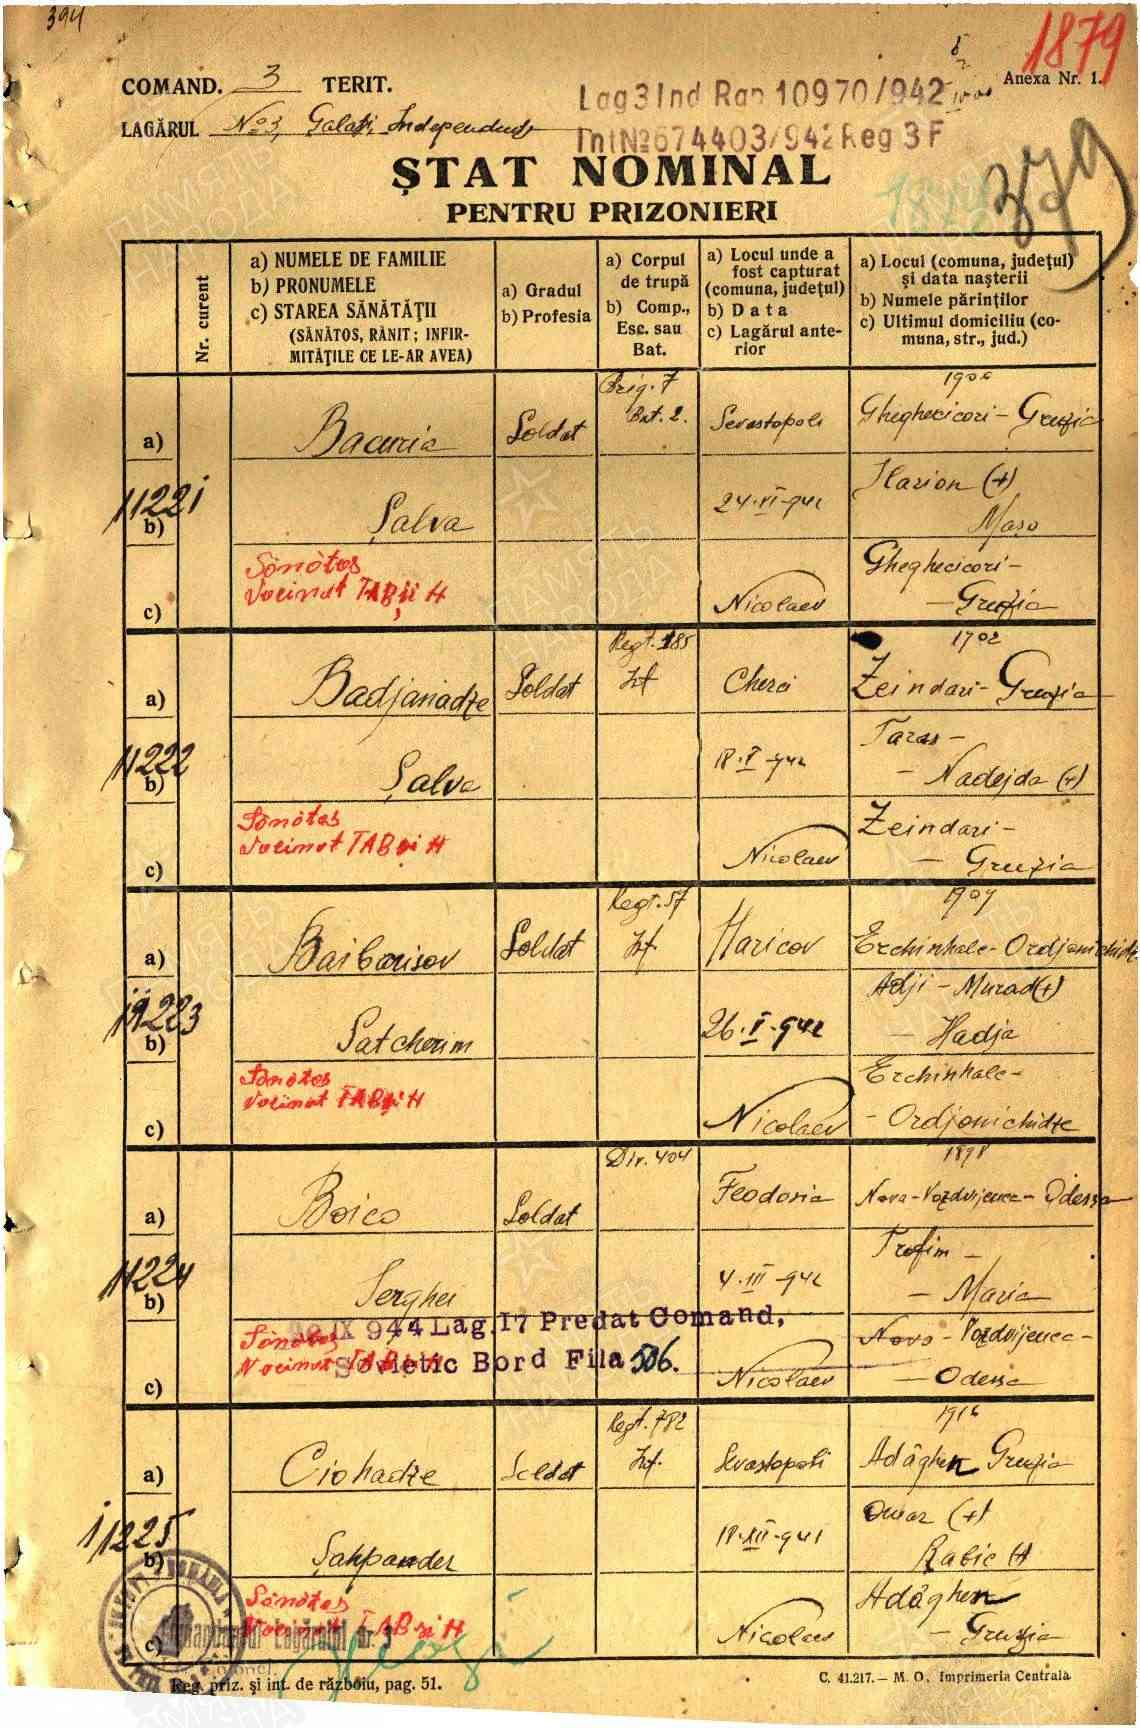 394
1879
COMAND. 3 TERIT.
Anexa Nr. 1.
Lag 3 Ind Rap 10970/942
LAGĂRUL No 3, Galați, Independenți
Int № 674403/942 Reg 3 F
ȘTAT NOMINAL
379
PENTRU PRIZONIERI
Nr. curent
a) NUMELE DE FAMILIE
b) PRONUMELE
c) STAREA SĂNĂTĂȚII
(SĂNĂTOS, RĂNIT; INFIR-
MITĂȚILE CE LE-AR AVEA)
a) Gradul
b) Profesia
a) Corpul
de trupă
b) Comp.,
Esc. sau
Bat.
a) Locul unde a
fost capturat
(comuna, județul)
b) Data
c) Lagărul ante-
rior
a) Locul (comuna, județul)
și data nașterii
b) Numele părinților
c) Ultimul domiciliu (co-
muna, str., jud.)
11221
a) Bacuria Soldat Brig. 7 Bat. 2. Sevastopoli Gheghecicori - Gruzia
b) Șalva 24·VI-942 Ilarion (+)
Mașo
c) Sănătos Nicolaev Gheghecicori -
Vocinat TAB și H - Gruzia
11222
a) Badjaniadze Soldat Regt. 185 Inf Cherci 1902 Zeindari - Gruzia
b) Șalva 18·V-942 Taras -
- Nadejda (+)
c) Sănătos Nicolaev Zeindari -
Vocinat TAB și H - Gruzia
11223
a) Baibarisov Soldat Regt. 57 Inf Haricov 1909 Erchinhale - Ordjonichidze
b) Satcherim 26·V-942 Adji - Murad (+)
- Hadja
c) Sănătos Nicolaev Erchinhale -
Vocinat TAB și H - Ordjonichidze
11224
a) Boico Soldat Div. 404 Feodosia 1898 Nova-Vozdvijenca - Odessa
b) Serghei 4·III-942 Trofim -
- Maria
IX 944 Lag. 17 Predat Comand,
Sovietic Bord Fila 506.
c) Sănătos Nicolaev Nova-Vozdvijenca -
Vocinat TAB și H - Odessa
11225
a) Ciohadze Soldat Regt. 782 Inf. Sevastopoli 1916 Adâghen Gruzia
b) Șahpander 18·XII-941 Omar (+)
Rabie (+)
c) Sănătos Nicolaev Adâghen
Vocinat TAB și H - Gruzia
Comandantul Lagărului nr. 3
Reg. priz. și int. de războiu, pag. 51.
C. 41.217. — M. O., Imprimeria Centrala
ПАМЯТЬ НАРОДА